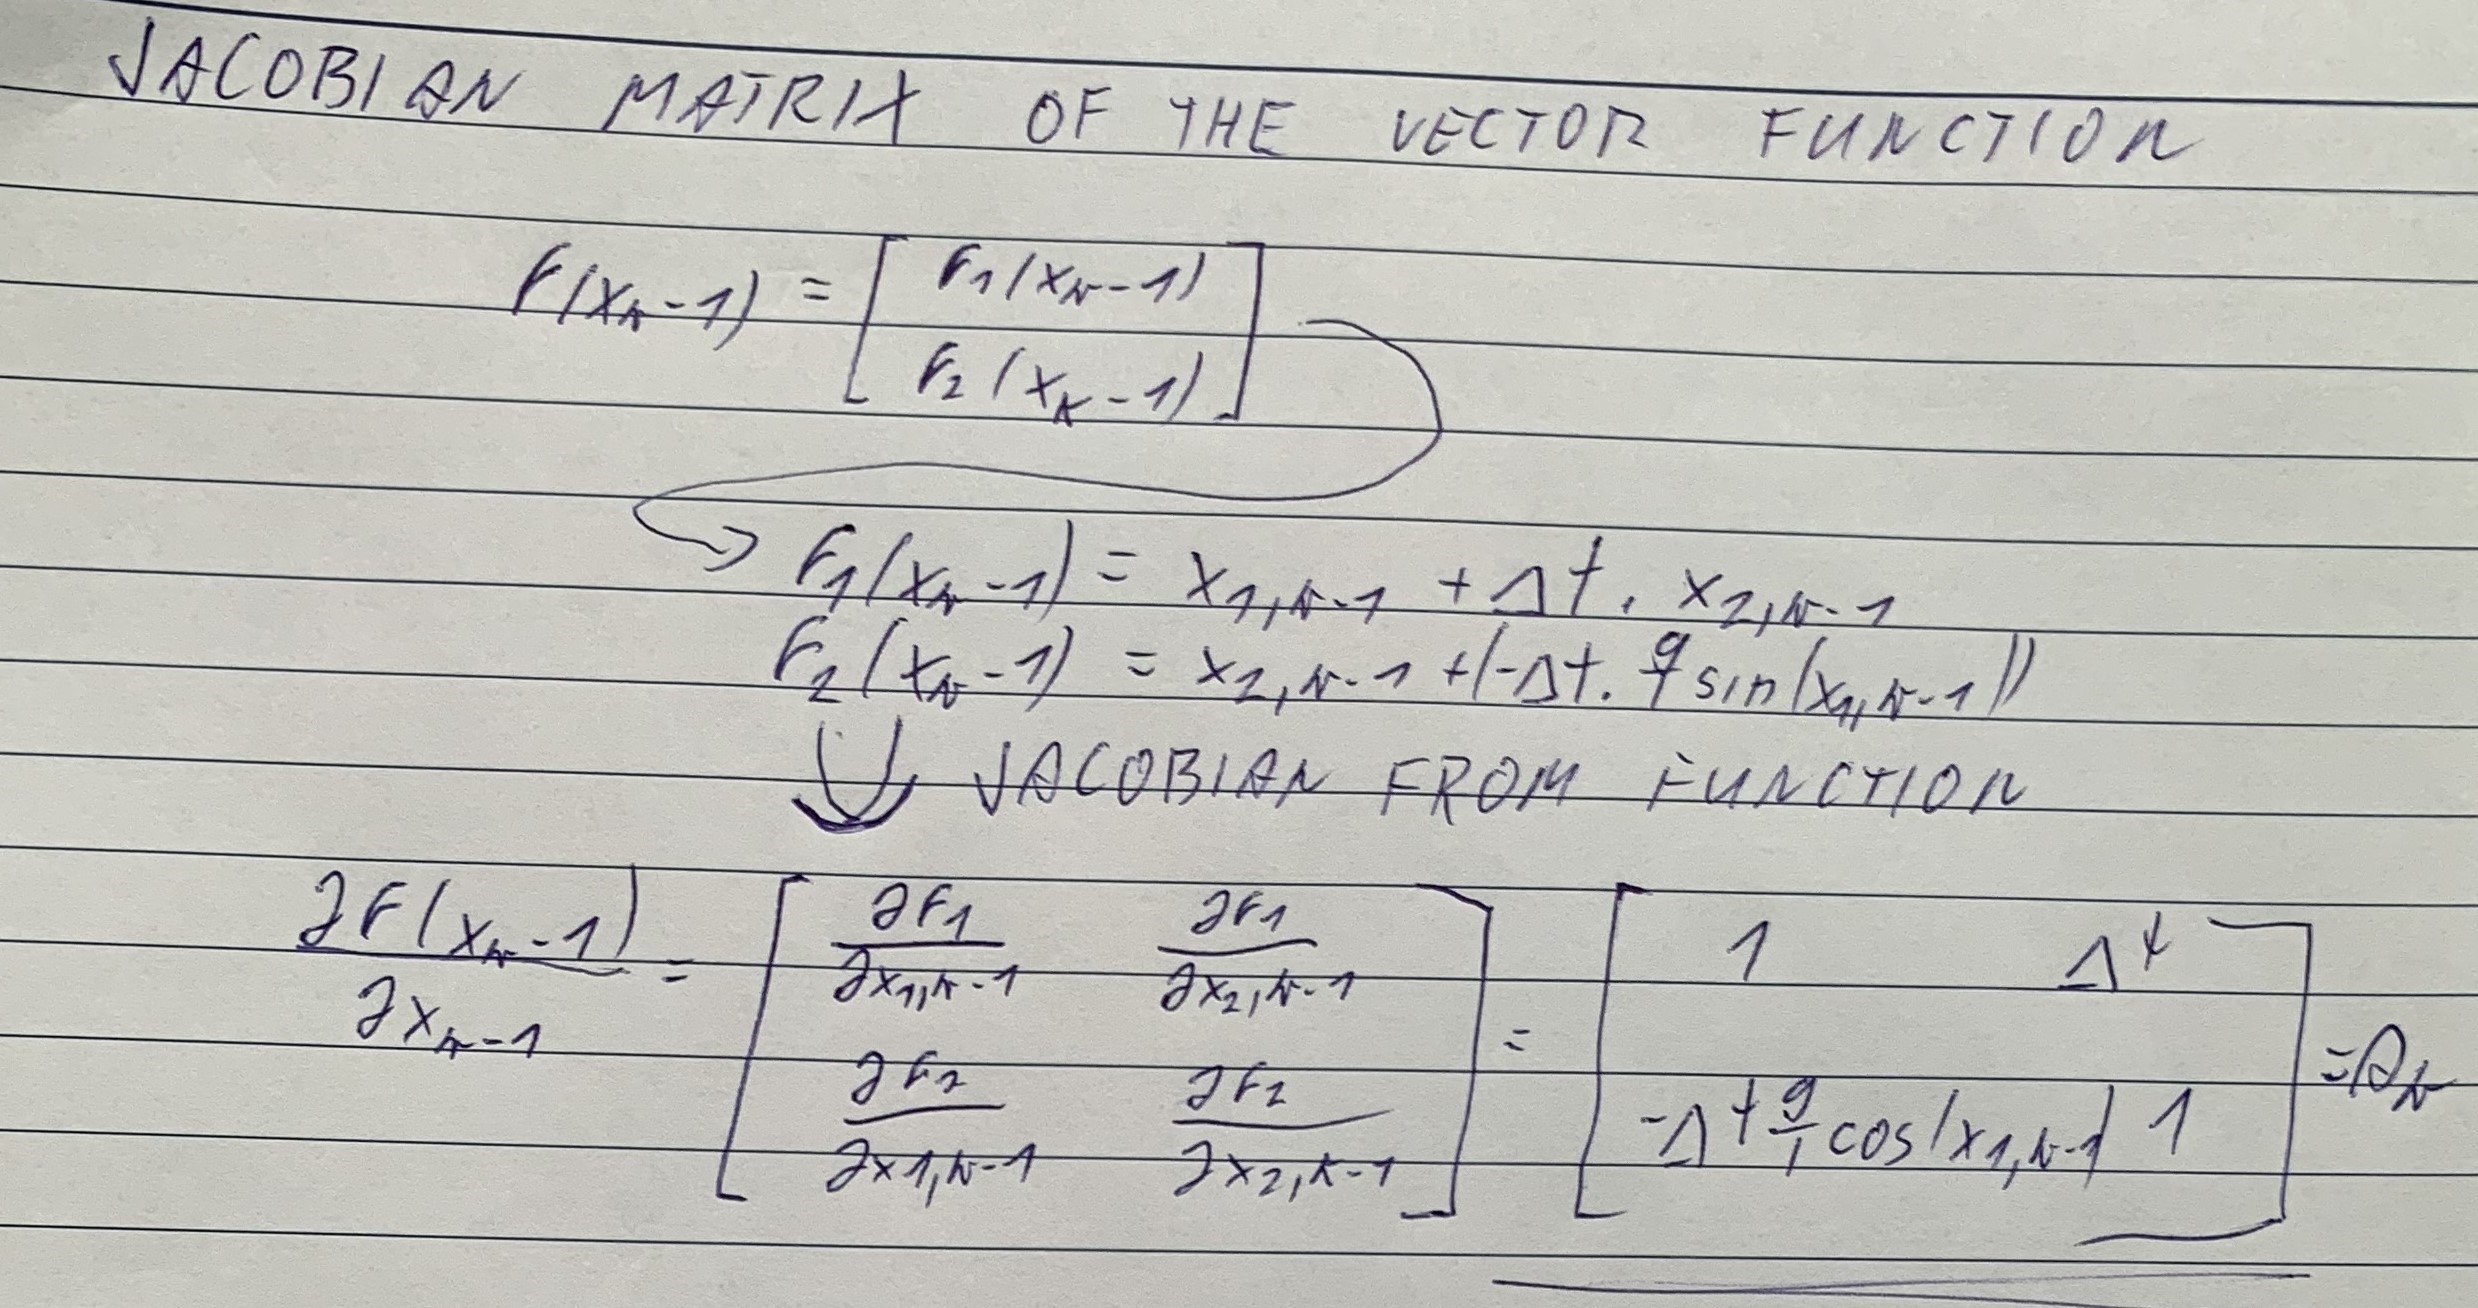 JACOBIAN MATRIX OF THE VECTOR FUNCTION
F(x_{k-1}) = [ F_1(x_{k-1})
F_2(x_{k-1}) ]
F_1(x_{k-1}) = x_{1,k-1} + Δt · x_{2,k-1}
F_2(x_{k-1}) = x_{2,k-1} + (-Δt · g/l sin(x_{1,k-1}))
JACOBIAN FROM FUNCTION
∂F(x_{k-1})/∂x_{k-1} = [ ∂F_1/∂x_{1,k-1} ∂F_1/∂x_{2,k-1} ; ∂F_2/∂x_{1,k-1} ∂F_2/∂x_{2,k-1} ] = [ 1 Δt ; -Δt g/l cos(x_{1,k-1}) 1 ] = A_k